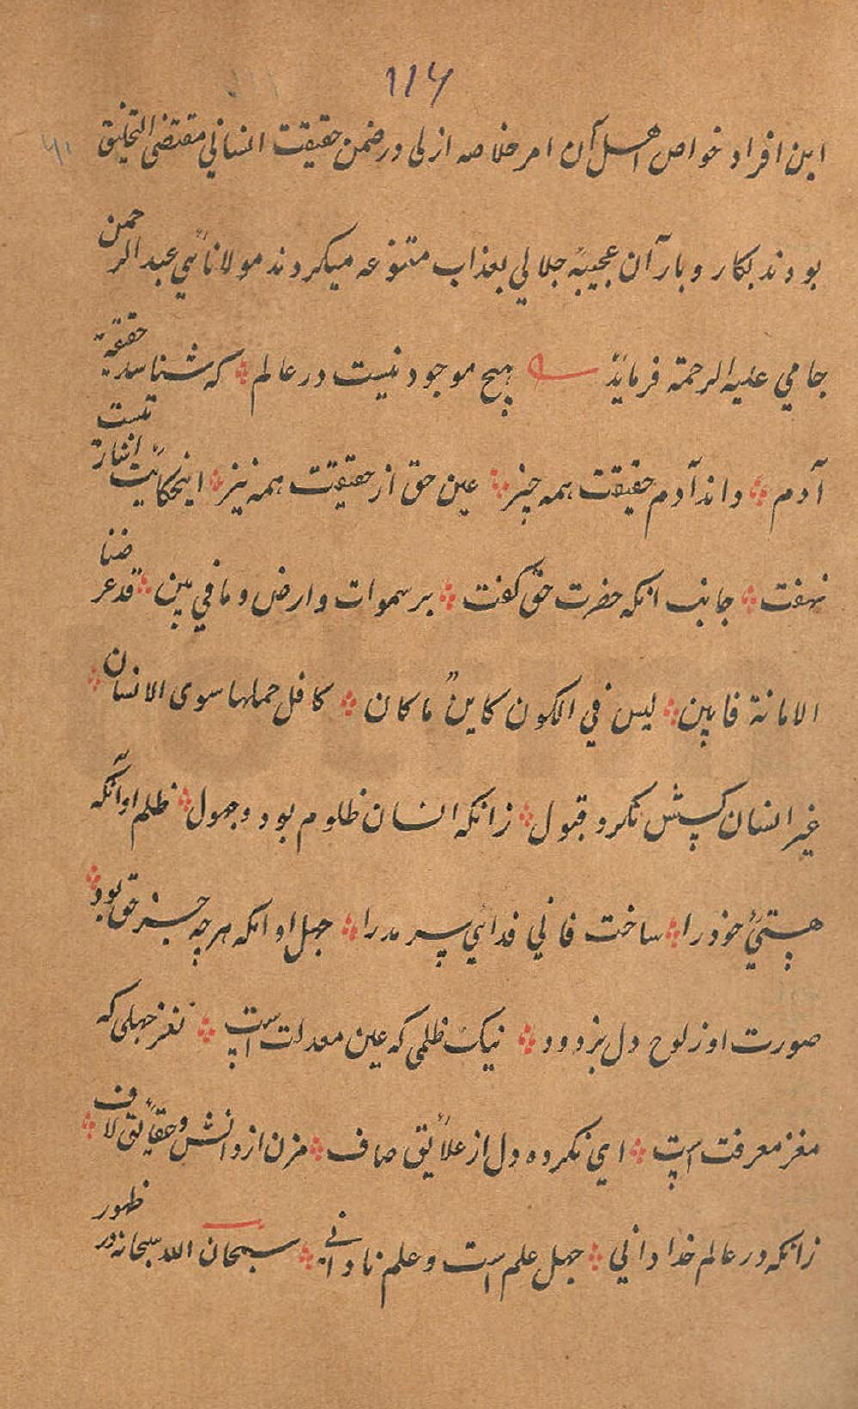 ۱۱۶
این افراد خواص اهل آن امر خلاصه ازلی در ضمن حقیقت انسانی مقتضی التخلیق
بودند بکار و بار آن عجیبهٔ جلالی بعذاب متنوعه میکردند مولاناٸی عبد الرحمن
جامی علیه الرحمة فرماید هیچ موجود نیست در عالم ؞ که شناسد حقیقة
آدم ؞ داند آدم حقیقت همه چیز ؞ عین حق از حقیقت همه نیز ؞ اینحکایت تست اشارة
نهفت ؞ جانب انکه حضرت حق گفت ؞ بر سموات و ارض و ما فی بین ؞ قد عرضنا
الامانة فابین ؞ لیس فی الکون کاین ما کان ؞ کافل حملها سوی الانسان ؞
غیر انسان کپسش نکرد قبول ؞ زانکه انسان ظلوم بود و جهول ؞ ظلم او آنکه
هپستیٔ خود را ؞ ساخت فانی فدایٔ پسرمدرا ؞ جهل او انکه هرچه جز حق بود ؞
صورت او ز لوح دل بزدود ؞ نیک ظلمی که عین معدلت اپست ؞ نغز جهلی که
مغز معرفت اپست ؞ ای نکرده دل از علائق صاف ؞ مزن از دانش و حقائق لاف ؞
زانکه در عالم خدا دانی ؞ جهل علم است و علم نادانی ؞ سبحان الله سبحانه در ظهور